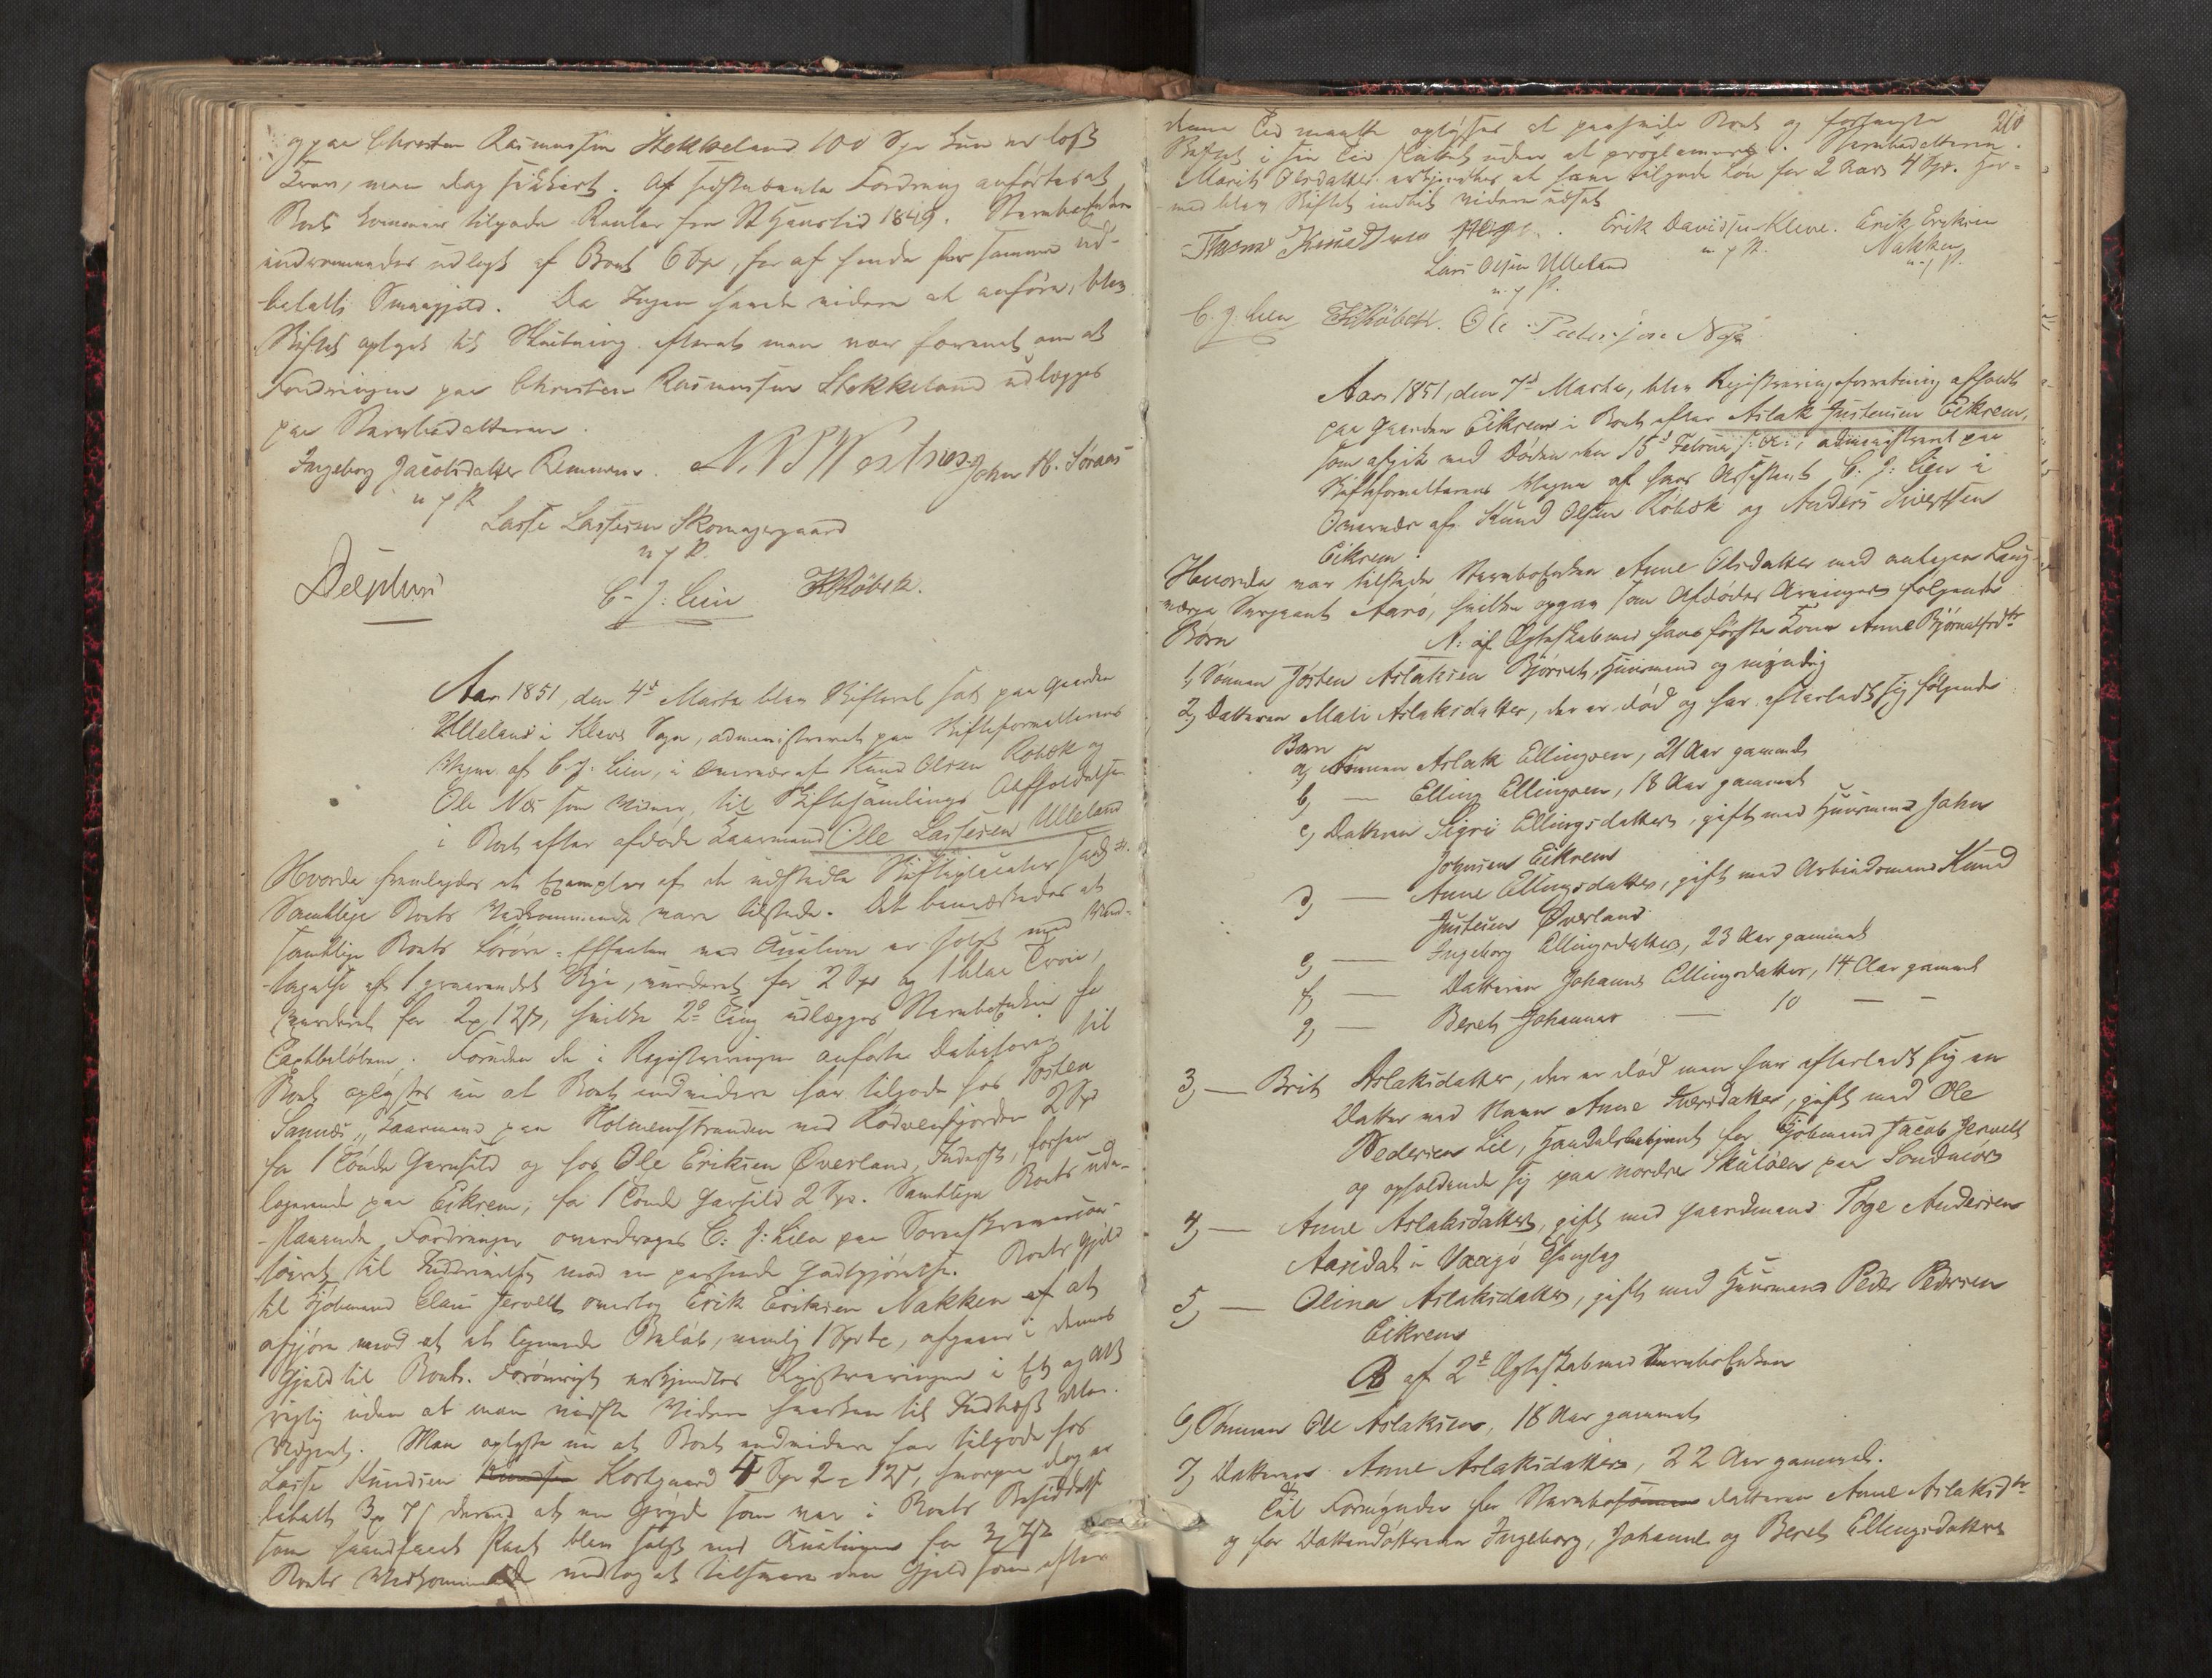 paa Christen Rasmussen Stokkeland 100 Spd kun er løst
Krav, men dog sikkert. Af sidstnævnte Fordring anførtes at
Boet kommer tilgode Renter fra St Hanstid 1849. Stervboenken
indrømmedes udlagt af Boet 6 Spd, for af hende for samme ud-
-betalte Smaagjeld. Da Ingen havde videre at anføre, blev
Skiftet optaget til Slutning efterat man var forenet om at
Fordringen paa Christen Rasmussen Stokkeland udlægges
paa Stervbodatteren.
Ingeborg Jacobsdatter Remmem. John H. Søraas
m f P.
Lasse Lassesen Skomagergaard
m f P.
C. J. Lien KORøbek.
Aar 1851, den 4de Marts blev Skifteret sat paa Gaarden
Ulleland i Kleve Sogn, administreret paa Skifteforvalterens
Vegne af C. J. Lien, i Overvær af Knud Olsen Røbek og
Ole Næs som Vidner, til Skiftesamlings Afholdelse
i Boet efter afdøde Kaarmand Ole Lassesen Ulleland
Hvorda fremlagdes et Exemplar af de udstedte Skifteplacater
Samtlige Boets Vedkommende vare tilstede. Det bemærkedes at
samtlige Boets Løsøre-Effecter ved Auction er solgt med Und-
-tagelse af 1 Rye, vurderet for 2 Spd og 1 blaa Trøie,
vurderet for 2 12 s, hvilke 2de Ting udlægges Stervboenken for
Taxtbeløbene. Foruden de i Registreringen anførte Debitorer til
Boet oplystes nu at Boet endvidere har tilgode hos Tosten
Sannes, Kaarmand paa Holmemstranden ved Rødvenfjorden 2 Spd
for 1 Tønde Gaarsild og hos Ole Eriksen Øverland, Inderst,
logerende paa Eikrem, for 1 Tønde Gaarsild 2 Spd. Samtlige Boets ude-
-staaende Fordringer overdroges C. J. Lien paa Sorenskrivercon-
-toiret til Inddrivelse mod en passende Godtgjørelse. Boets Gjeld
til Kjøbmand Claus Jervell overtog Erik Eriksen Nakken at
afgjøre mod at et lignende Beløb, nemlig 1 Spd, afgaaer i dennes
Gjeld til Boet. Forøvrigt erkjendtes Registreringen i Et og Alt
rigtig uden at man vidste Videre hverken til Indtægt eller
Udgivt. Man oplyste nu at Boet endvidere har tilgode hos
Lasse Knudsen Kortgaard 4 Spd 2 12 s, hvorpaa dog er
betalt 3 7 s derved at en Gryde som var i Boets Besiddelse
som haandfaaet Pant blev solgt ved Auctionen for 3 7 s
Boets Vedkommende vedtog at tilsvare den Gjeld som efter
210
denne Tid maatte oplyses at paahvile Boet og forlangte
Skiftet i sin Tid sluttet uden at proclamere. Stervbodatteren
Marit Olsdatter erkjendtes at have tilgode Løn for 2 Aar 4 Spd. Her-
-med blev Skiftet indtil videre udsat
Erik Davidsen Kleve. Erik Eriksen
m f P. Nakken
Lars Olsen Ulleland m f P.
m f P.
C. J. Lien KORøbek. Ole Pedersen Næs
Aar 1851, den 7de Marts, blev Registreringsforretning afholdt
paa Gaarden Eikrem i Boet efter Aslak Justensen Eikrem,
som afgik ved Døden den 15de Februar s: A:, administreret paa
Skifteforvalterens Vegne af hans Assistent C. J: Lien i
Overvær af Knud Olsen Røbek og Anders Sivertsen
Eikrem.
Hvorda var tilstede Stervboenken Anne Olsdatter med antagen Laug-
-værge Sergeant Aarø, hvilken opgav som Afdødes Arvinger følgende
Børn A: af Ægteskab med hans første Kone Anne Bjørnalfsdtr
1, Sønnen Jøsten Aslaksen Bjørset, Huusmand og myndig
2, Datteren Mali Aslaksdatter, der er død og har efterladt sig følgende
Børn
a, Sønnen Aslak Ellingsen, 21 Aar gammel
b, — Elling Ellingsen, 18 Aar gammel
c, Datteren Sigri Ellingsdatter, gift med Huusmand John
Johnsen Eikrem
d, — Anne Ellingsdatter, gift med Arbeidsmand Knud
Justsen Øverland
e, — Ingeborg Ellingsdatter, 23 Aar gammel
f, — Datteren Johanne Ellingsdatter, 14 Aar gammel
g, — Beret Johanna — 10 — —
3, — Brit Aslaksdatter, der er død men har efterladt sig en
Datter ved Navn Anne Iversdatter, gift med Ole
Pedersen Lie, Handelsbetjent for Kjøbmand Jacob Jervell
og opholdende sig paa nordre Skuløen paa Søndmør
4, — Anne Aslaksdatter, gift med Gaardmand Toge Andersen
Aasdal i Vaagø Thinglag
5, — Olina Aslaksdatter, gift med Huusmand Peder Pedersen
Eikrem
B af 2det Ægteskab med Stervboenken
6, Sønnen Ole Aslaksen, 18 Aar gammel
7, Datteren Anne Aslaksdatter, 22 Aar gammel.
Til Formynder for Stervbosønnen datteren Anne Aslaksdtr
og for Datterdøttrene Ingeborg, Johanne og Beret Ellingsdøttre